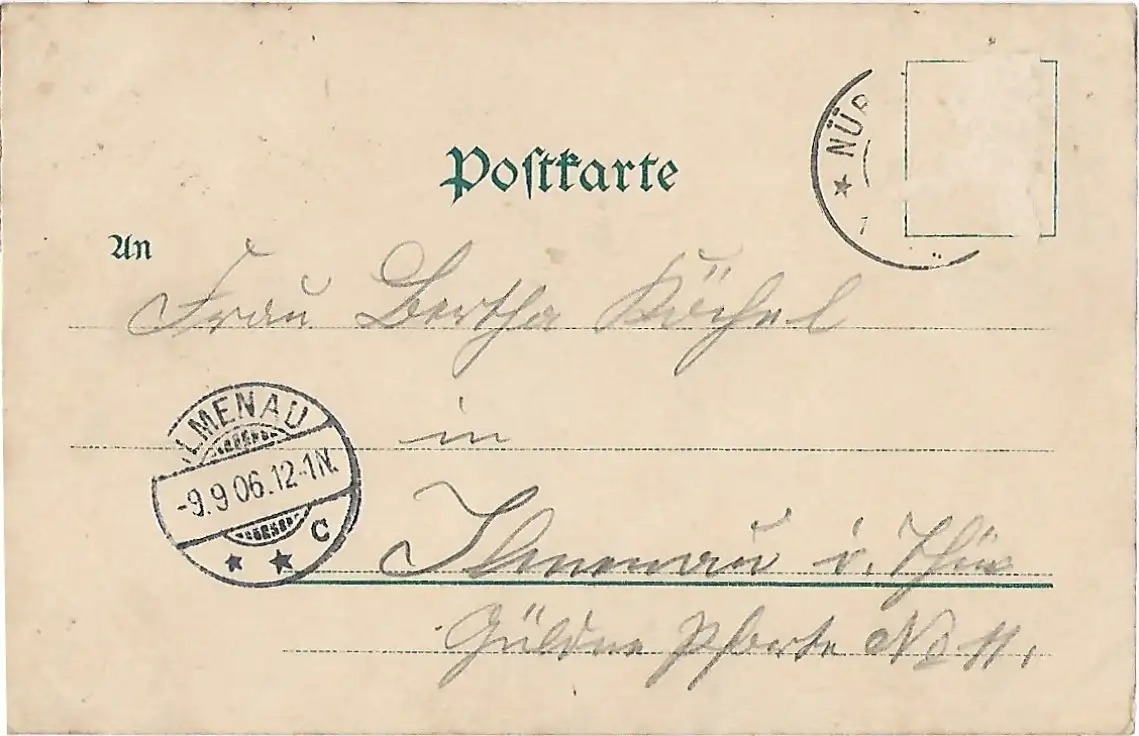 Postkarte
NÜR
An
Frau Bertha Köchel
in
ILMENAU
-9.9 06.12-1N.
C
Ilmenau i. Thür
Güldne Pforte No 11.